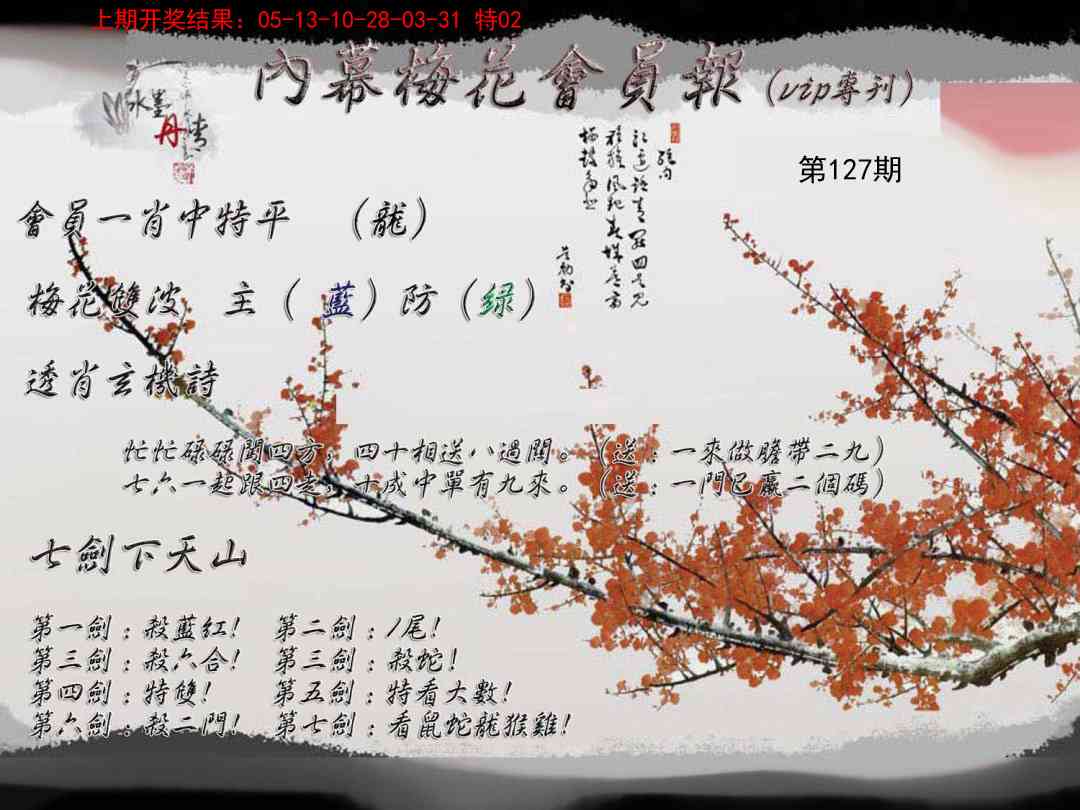 上期开奖结果：05-13-10-28-03-31 特02
內幕梅花會員報（vip專刊）
水墨
丹青
第127期
會員一肖中特平　（龍）
梅花雙波　主（藍）防（綠）
透肖玄機詩
忙忙碌碌闖四方，四十相送八過關。（送：一來做膽帶二九）
七六一起跟四走，十成中單有九來。（送：一門已贏二個碼）
七劍下天山
第一劍：殺藍紅！ 第二劍：1尾！
第三劍：殺六合！ 第三劍：殺蛇！
第四劍：特雙！ 第五劍：特看大數！
第六劍：殺二門！ 第七劍：看鼠蛇龍猴雞！